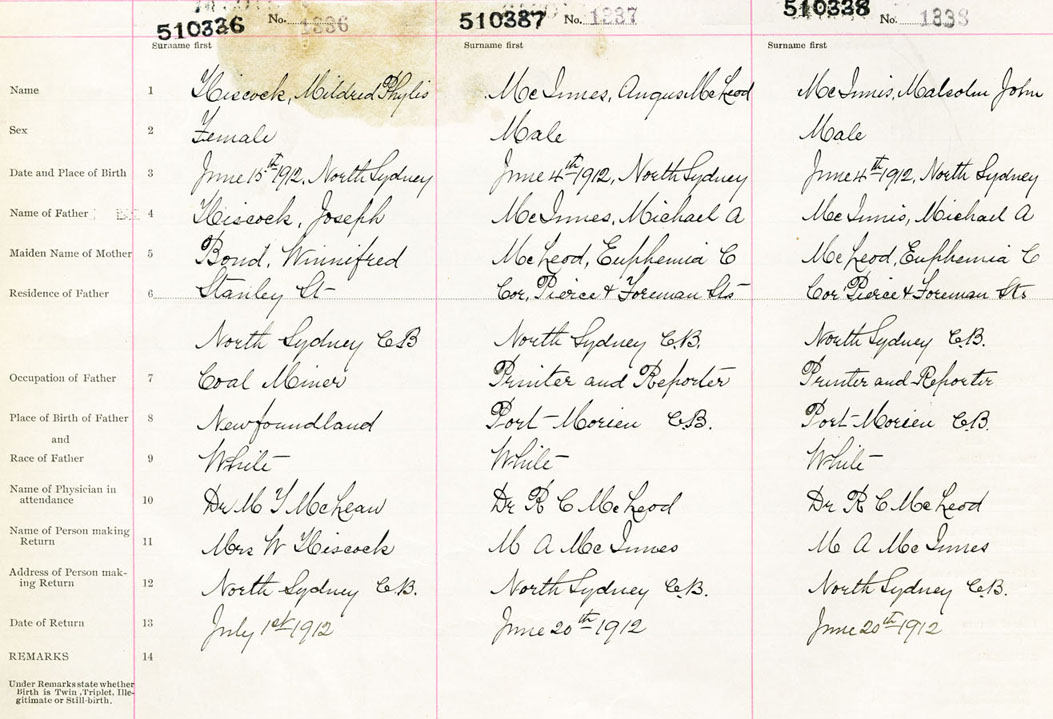 510336 No. 1336 510337 No. 1337 510338 No. 1338
Surname first Surname first Surname first
Name 1 Hiscock, Mildred Phylis McInnes, Angus McLeod McInnis, Malcolm John
Sex 2 Female Male Male
Date and Place of Birth 3 June 15th 1912, North Sydney June 4th 1912, North Sydney June 4th 1912, North Sydney
Name of Father 4 Hiscock, Joseph McInnes, Michael A McInnis, Michael A
Maiden Name of Mother 5 Bond, Winnifred McLeod, Euphemia C McLeod, Euphemia C
Residence of Father 6 Stanley St Cor, Pierce & Foreman Sts Cor Pierce & Foreman Sts
North Sydney C.B North Sydney C.B. North Sydney C.B.
Occupation of Father 7 Coal Miner Printer and Reporter Printer and Reporter
Place of Birth of Father 8 Newfoundland Port Morien C.B. Port Morien C.B.
and
Race of Father 9 White White White
Name of Physician in
attendance 10 Dr M McLean Dr R C McLeod Dr R C McLeod
Name of Person making
Return 11 Mrs W Hiscock M A McInnes M A McInnes
Address of Person mak-
ing Return 12 North Sydney C.B. North Sydney C.B. North Sydney C.B.
Date of Return 13 July 1st 1912 June 20th 1912 June 20th 1912
REMARKS 14
Under Remarks state whether
Birth is Twin, Triplet, Ille-
gitimate or Still-birth.